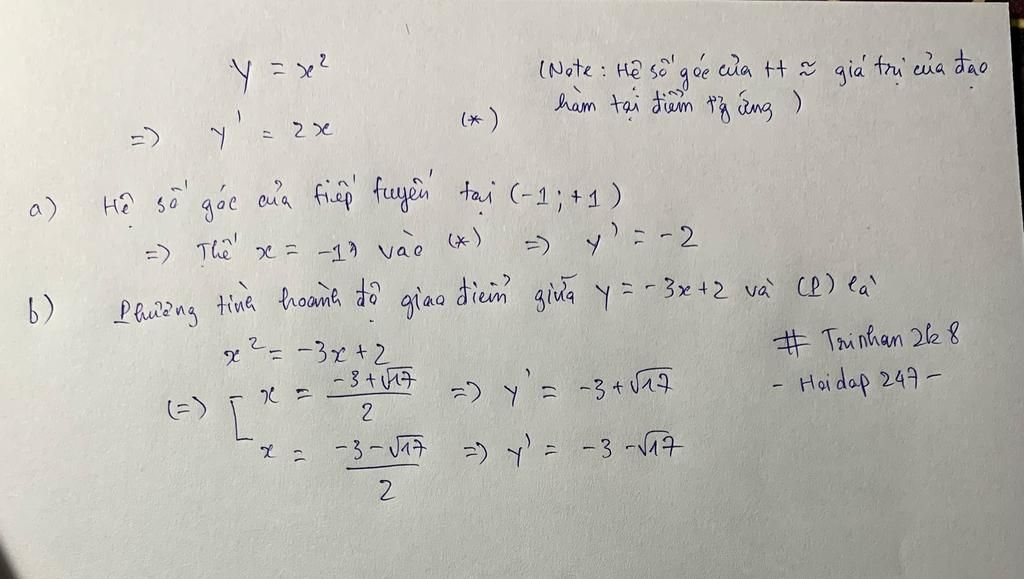 y = x²
(Note: Hệ số góc của tt ≈ giá trị của đạo
hàm tại điểm tg ứng)
=> y' = 2x (*)
a) Hệ số góc của tiếp tuyến tại (-1; +1)
=> Thế x = -1 vào (*) => y' = -2
b) Phương tình hoành độ giao điểm giữa y = -3x+2 và (P) là
x² = -3x + 2
(=) [ x = (-3+√17)/2 => y' = -3+√17
x = (-3-√17)/2 => y' = -3-√17
# Trinhan 2k8
- Hoidap 247 -